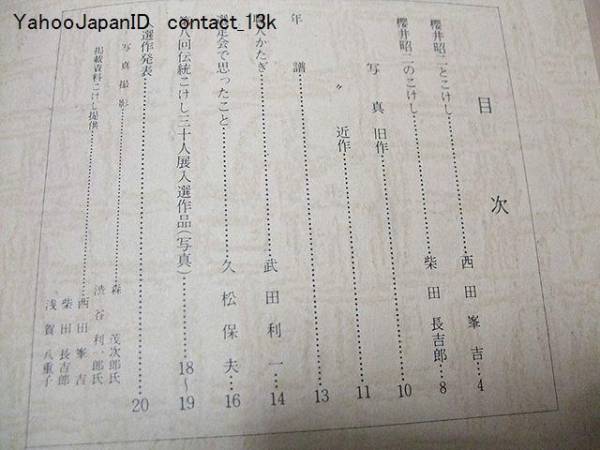 YahooJapanID contact_13k
目次
櫻井昭二とこけし……西田峯吉…4
櫻井昭二のこけし……柴田長吉郎…8
写真旧作……10
〃 近作……11
年譜……13
人かたぎ……武田利一…14
選定会で思ったこと……久松保夫…16
第八回伝統こけし三十人展入選作品(写真)……18～19
選作発表……20
写真撮影……森茂次郎氏
渋谷利一郎氏
掲載資料こけし提供……西田峯吉
柴田長吉郎
浅賀八重子